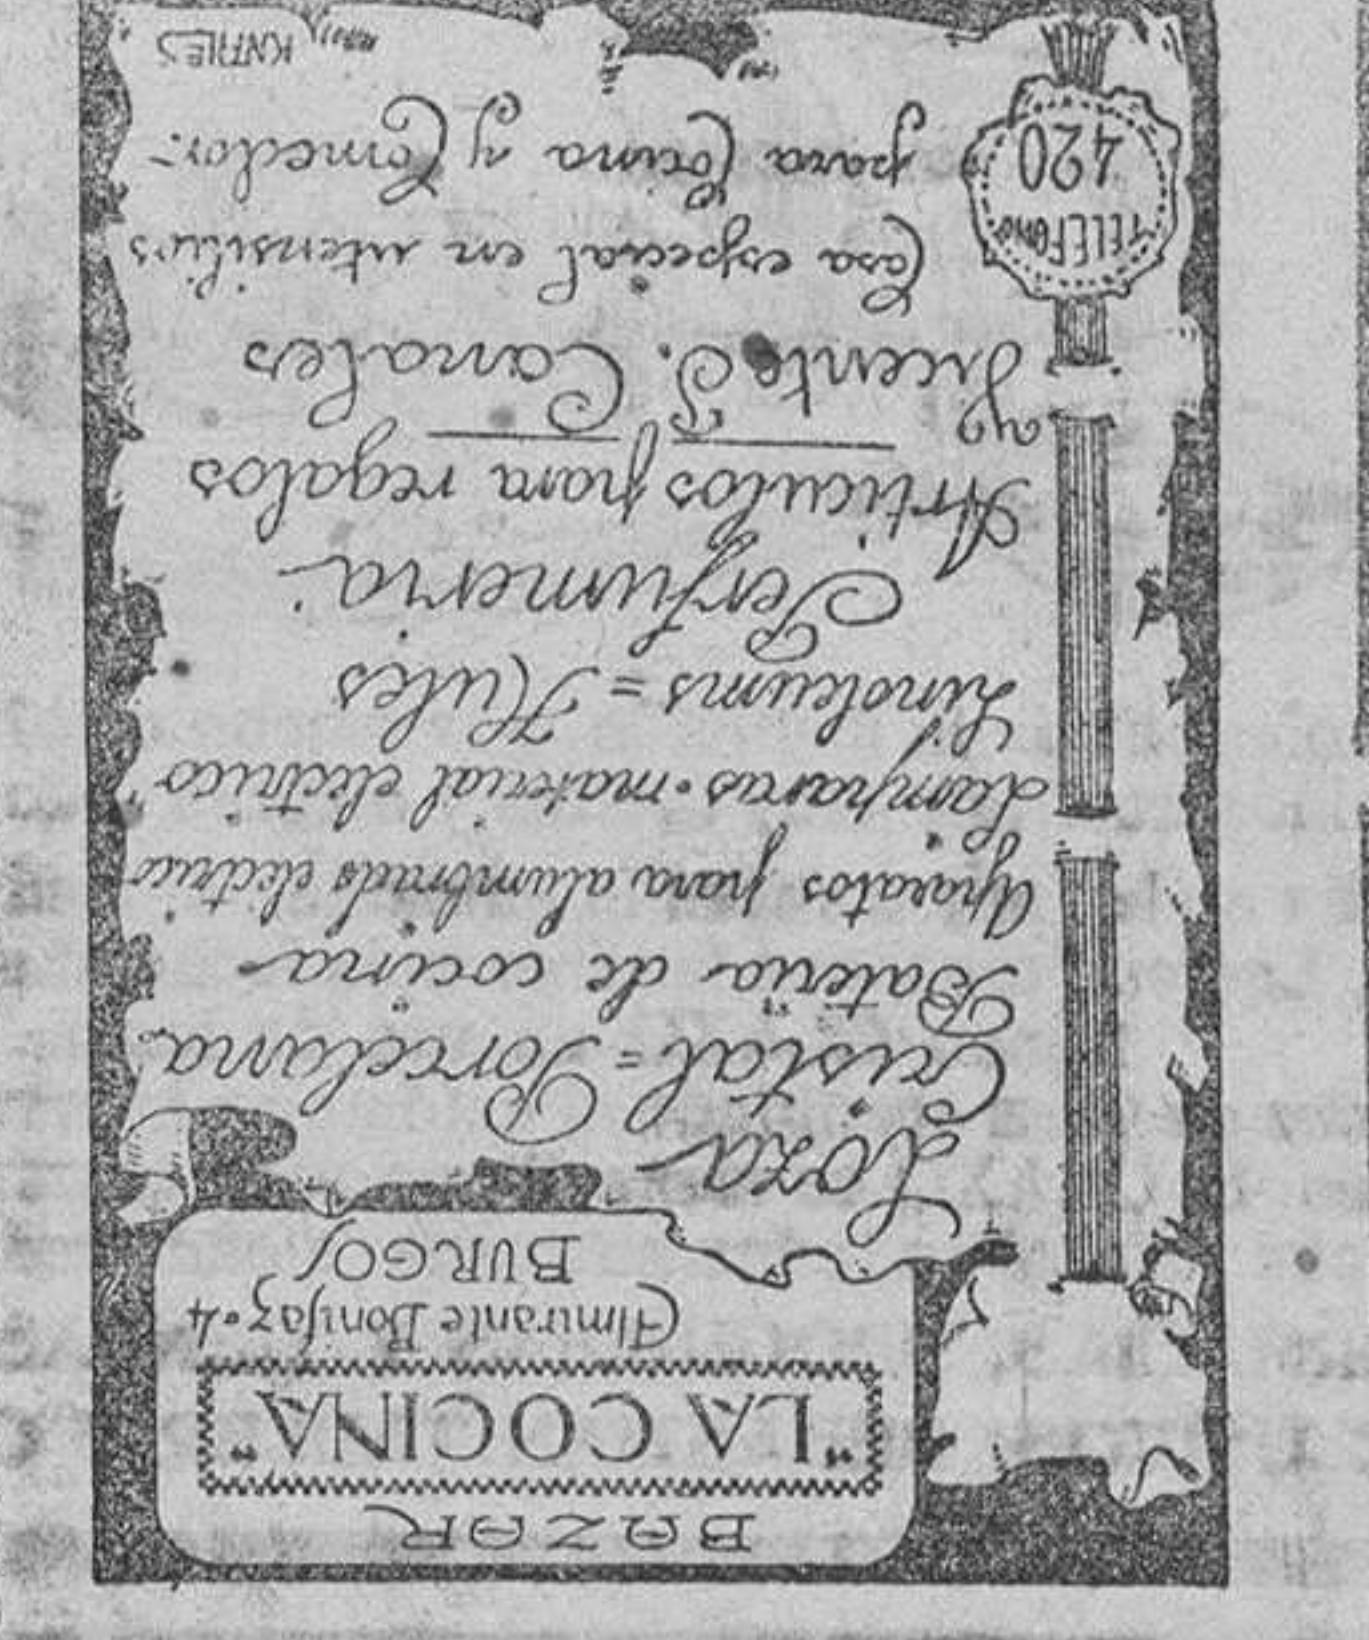 BAZAR
"LA COCINA"
Almirante Bonifaz · 4
BURGOS
Loza
Cristal = Porcelana
Batería de cocina
Aparatos para alumbrado eléctrico
Lamparas · material eléctrico
Linoleums = Hules
Perfumeria
Artículos para regalos
Vicente S. Canales
Casa especial en utensilios
para Cocina y Comedor.
TELEFONO
420